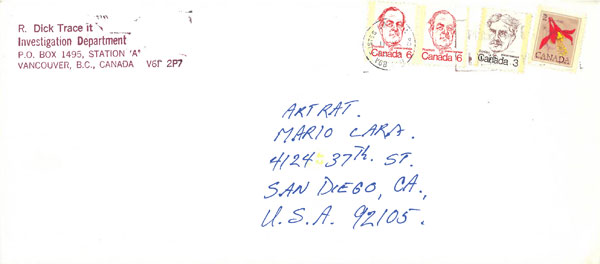 R. Dick Trace it
Investigation Department
P.O. BOX 1495, STATION 'A'
VANCOUVER, B.C., CANADA V6P 2P7
Canada 6
Canada 6
Canada 3
2
CANADA
ARTRAT.
MARIO LARA.
4124 37TH. ST.
SAN DIEGO, CA.,
U.S.A. 92105.